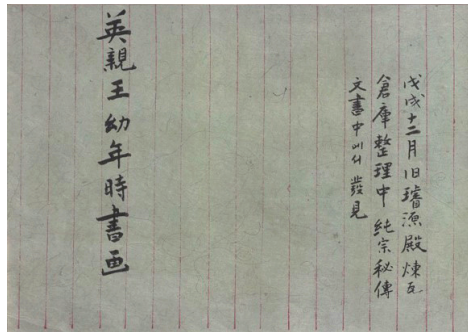 戊戌十二月旧璿源殿煉瓦
倉庫整理中純宗秘傳
文書中에서發見
英親王幼年時書画